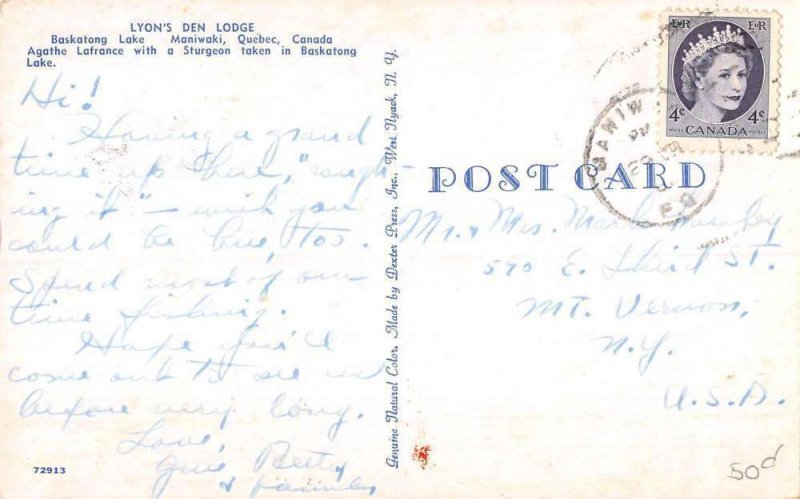 LYON'S DEN LODGE
Baskatong Lake Maniwaki, Quebec, Canada
Agathe Lafrance with a Sturgeon taken in Baskatong
Lake.
Hi!
Having a grand
time up here, "rough-
ing it" – wish you
could be here, too.
Spend most of our
time fishing.
Hope you'll
come out to see us
before very long.
Love,
Betty
& family
72913
Genuine Natural Color. Made by Dexter Press, Inc., West Nyack, N. Y.
E R E R
4¢ 4¢
POSTES CANADA POSTAGE
MANIW
PM
P.Q
POST CARD
Mr. & Mrs. Mark
590 E. Third St.
Mt. Vernon,
N.Y.
U.S.A.
50